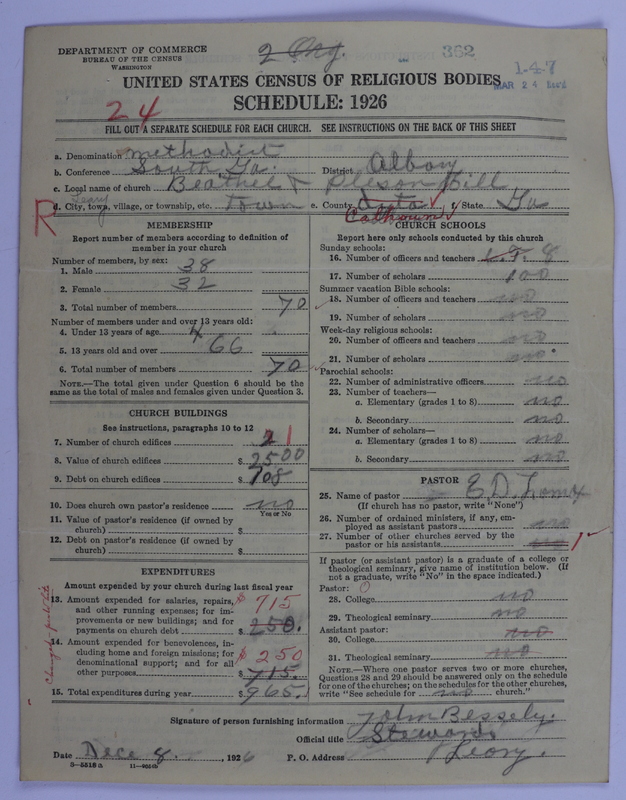 DEPARTMENT OF COMMERCE
BUREAU OF THE CENSUS
WASHINGTON
362
147
MAR 24
UNITED STATES CENSUS OF RELIGIOUS BODIES
SCHEDULE: 1926
24
FILL OUT A SEPARATE SCHEDULE FOR EACH CHURCH. SEE INSTRUCTIONS ON THE BACK OF THIS SHEET
a. Denomination Methodist
b. Conference South Ga. District Albany
c. Local name of church Beathel + Hill
R
d. City, town, village, or township, etc. Leary town e. County Calhoun f. State Ga
MEMBERSHIP
Report number of members according to definition of
member in your church
Number of members, by sex:
1. Male 38
2. Female 32
3. Total number of members 70
Number of members under and over 13 years old:
4. Under 13 years of age 4
5. 13 years old and over 66
6. Total number of members 70
NOTE.—The total given under Question 6 should be the
same as the total of males and females given under Question 3.
CHURCH BUILDINGS
See instructions, paragraphs 10 to 12
7. Number of church edifices 2 1
8. Value of church edifices $ 2500
9. Debt on church edifices $ 708
10. Does church own pastor's residence no
Yes or No
11. Value of pastor's residence (if owned by
church) $
12. Debt on pastor's residence (if owned by
church) $
EXPENDITURES
Amount expended by your church during last fiscal year
13. Amount expended for salaries, repairs, $ 715
and other running expenses; for im-
provements or new buildings; and for
payments on church debt $ 250.
14. Amount expended for benevolences, in-
cluding home and foreign missions; for
denominational support; and for all $ 250
other purposes $ 715.
15. Total expenditures during year $ 965.
Changed
CHURCH SCHOOLS
Report here only schools conducted by this church
Sunday schools:
16. Number of officers and teachers 8
17. Number of scholars 100
Summer vacation Bible schools:
18. Number of officers and teachers no
19. Number of scholars no
Week-day religious schools:
20. Number of officers and teachers no
21. Number of scholars no
Parochial schools:
22. Number of administrative officers no
23. Number of teachers—
a. Elementary (grades 1 to 8) no
b. Secondary no
24. Number of scholars—
a. Elementary (grades 1 to 8) no
b. Secondary no
PASTOR
25. Name of pastor E.D. Lomax
(If church has no pastor, write "None")
26. Number of ordained ministers, if any, em-
ployed as assistant pastors no
27. Number of other churches served by the
pastor or his assistants no 1
If pastor (or assistant pastor) is a graduate of a college or
theological seminary, give name of institution below. (If
not a graduate, write "No" in the space indicated.)
Pastor: 0
28. College no
29. Theological seminary no
Assistant pastor:
30. College no
31. Theological seminary no
NOTE.—Where one pastor serves two or more churches,
Questions 28 and 29 should be answered only on the schedule
for one of the churches; on the schedules for the other churches,
write "See schedule for no church."
Signature of person furnishing information John Bessely.
Official title Steward
Date Dece 8, 1926 P. O. Address Leory.